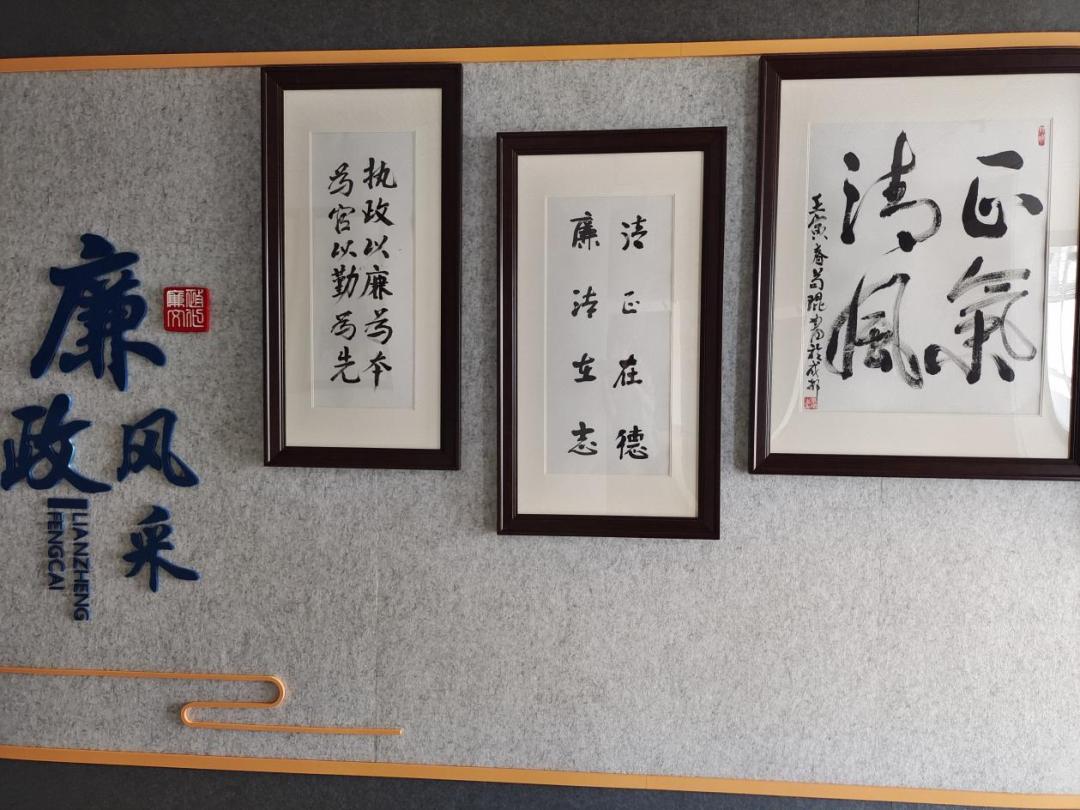 廉
政
风采
LIANZHENG
FENGCAI
执政以廉為本
為官以勤為先
清正在德
廉洁在志
正氣
清風
壬寅春